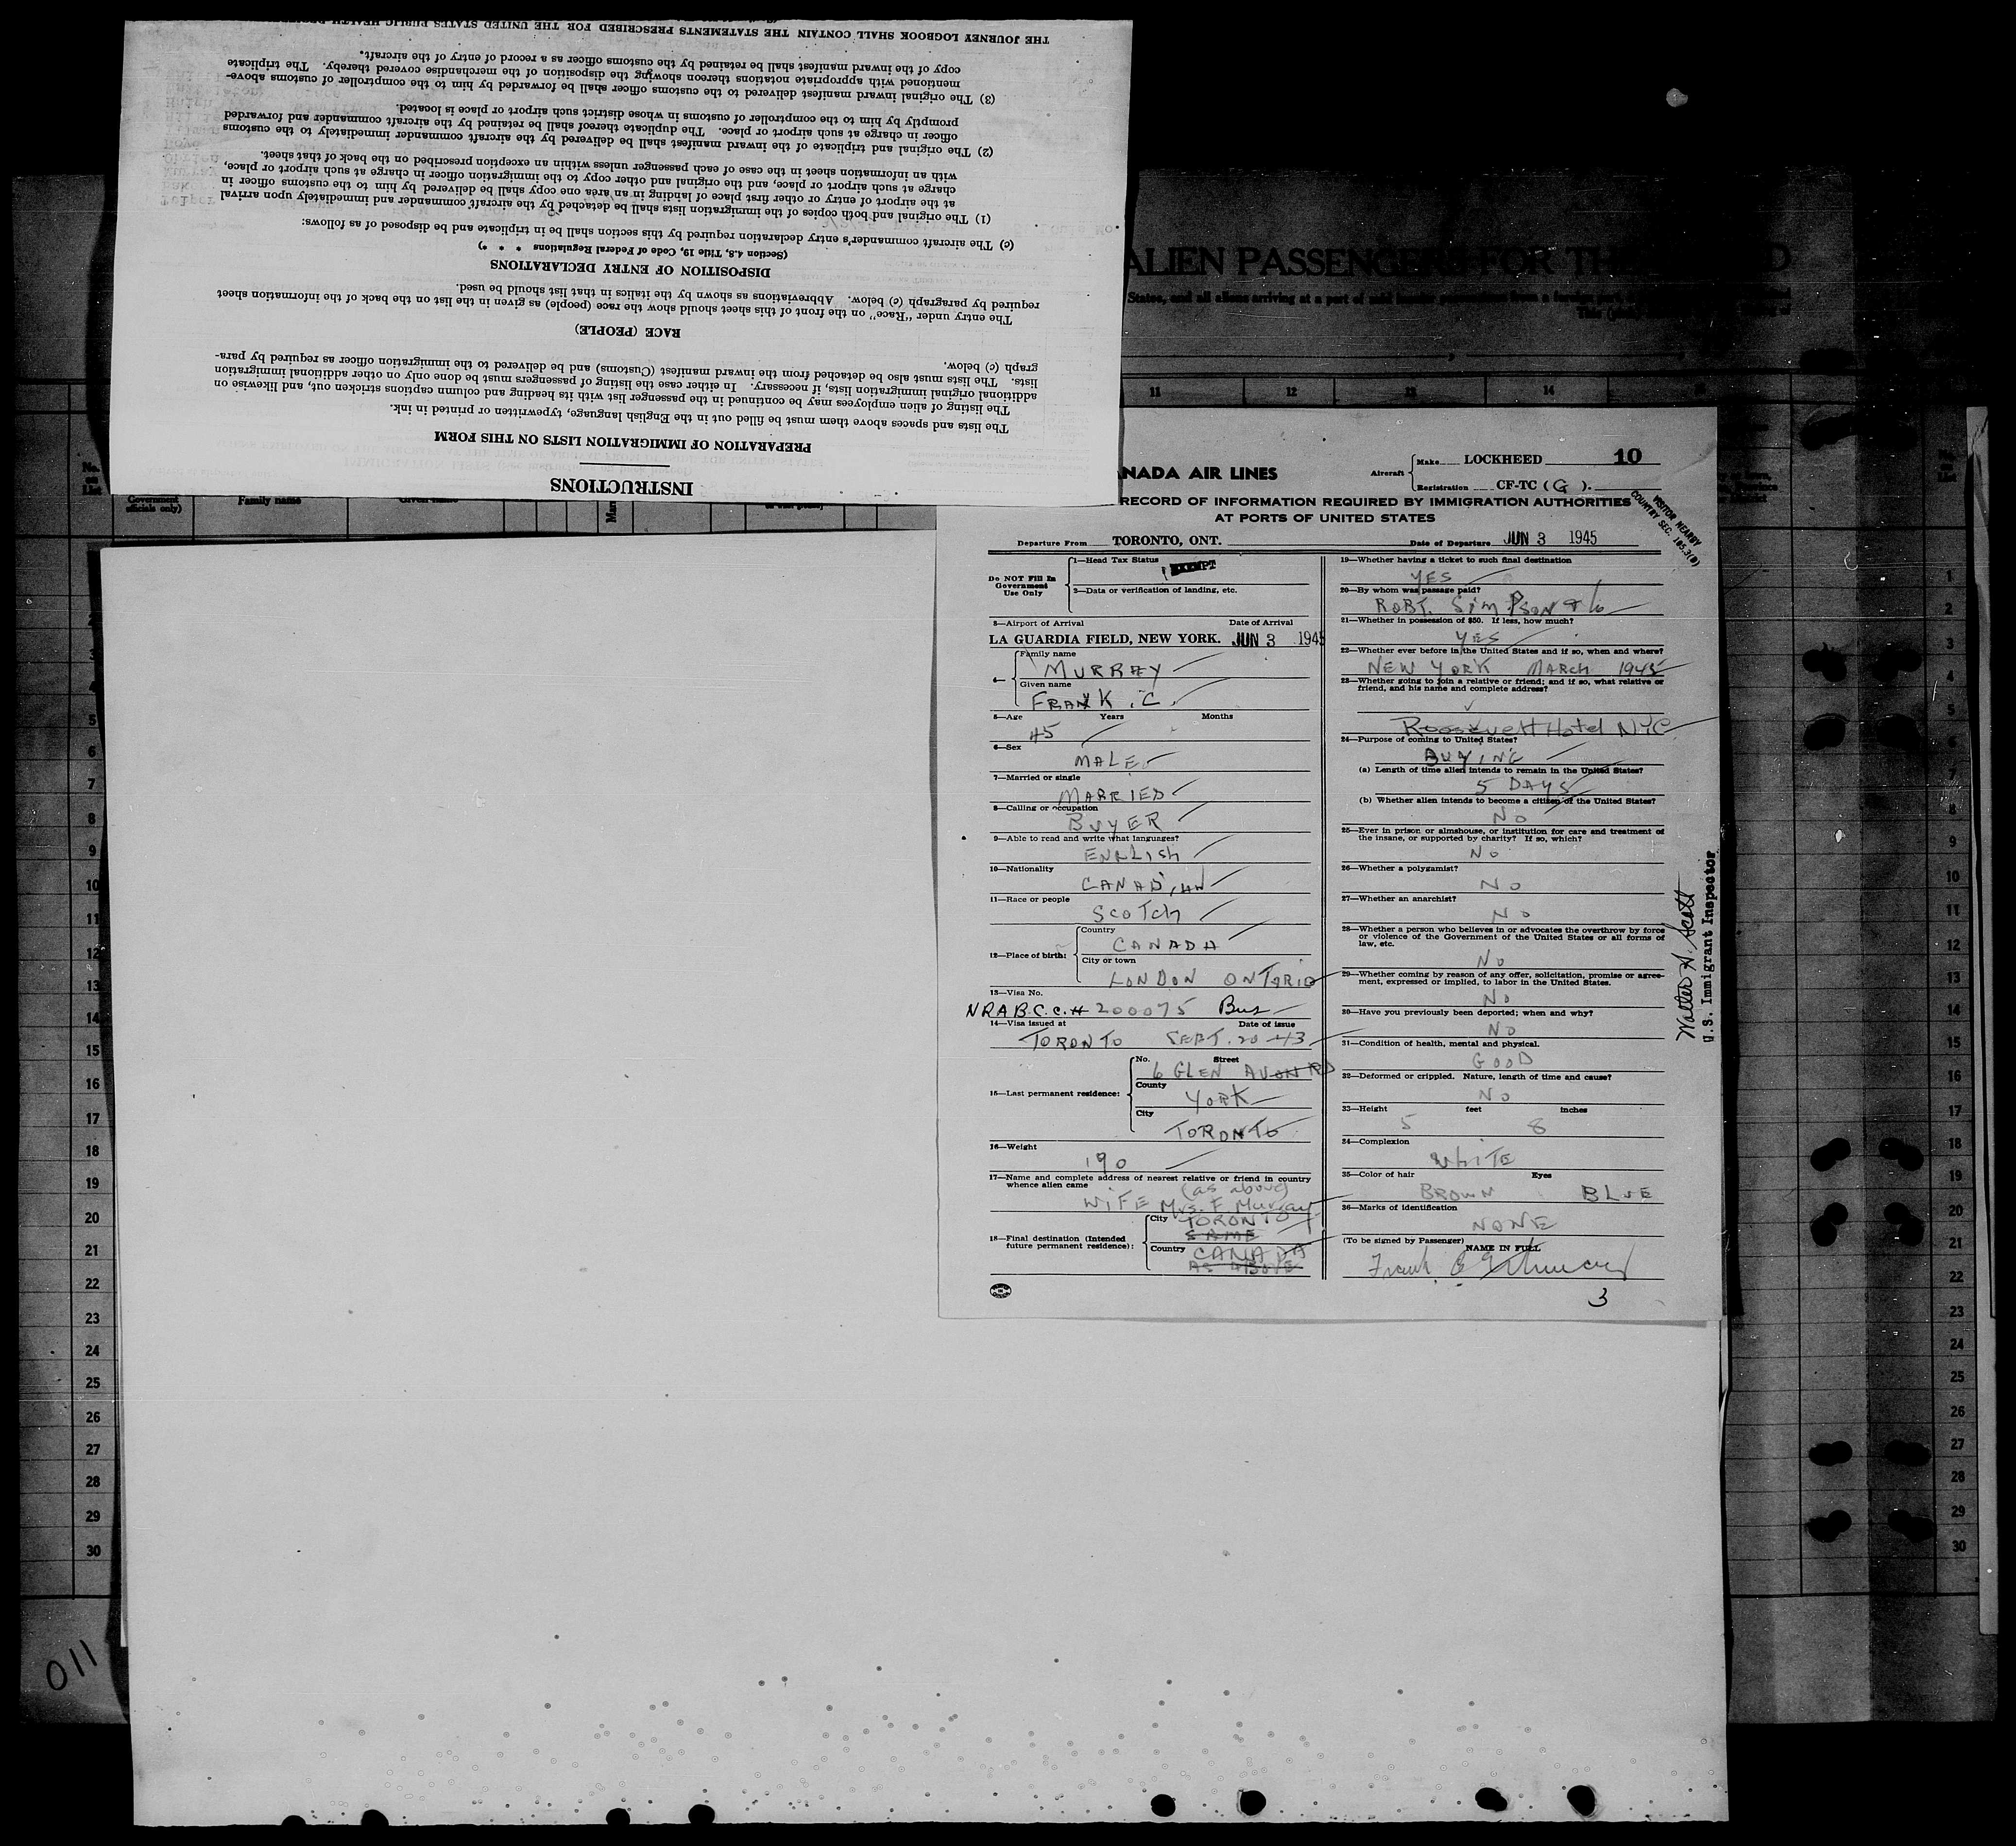 INSTRUCTIONS
PREPARATION OF IMMIGRATION LISTS ON THIS FORM
The lists and spaces above them must be filled out in the English language, typewritten or printed in ink.
The listing of alien employees may be continued in the passenger list with its heading and column captions stricken out, and likewise on
additional original immigration lists, if necessary. In either case the listing of passengers must be done only on other additional immigration
lists. The lists must also be detached from the inward manifest (Customs) and be delivered to the immigration officer as required by para-
graph (c) below.
RACE (PEOPLE)
The entry under "Race" on the front of this sheet should show the race (people) as given in the list on the back of the information sheet
required by paragraph (c) below. Abbreviations as shown by the italics in that list should be used.
DISPOSITION OF ENTRY DECLARATIONS
(Section 4.8, Title 19, Code of Federal Regulations * * *)
(c) The aircraft commander's entry declaration required by this section shall be in triplicate and be disposed of as follows:
(1) The original and both copies of the immigration lists shall be detached by the aircraft commander and immediately upon arrival
at the airport of entry or other first place of landing in an area one copy shall be delivered by him to the customs officer in
charge at such airport or place, and the original and other copy to the immigration officer in charge at such airport or place,
with an information sheet in the case of each passenger unless within an exception prescribed on the back of that sheet.
(2) The original and triplicate of the inward manifest shall be delivered by the aircraft commander immediately to the customs
officer in charge at such airport or place. The duplicate thereof shall be retained by the aircraft commander and forwarded
promptly by him to the comptroller of customs in whose district such airport or place is located.
(3) The original inward manifest delivered to the customs officer shall be forwarded by him to the comptroller of customs above-
mentioned with appropriate notations thereon showing the disposition of the merchandise covered thereby. The triplicate
copy of the inward manifest shall be retained by the customs officer as a record of entry of the aircraft.
THE JOURNEY LOGBOOK SHALL CONTAIN THE STATEMENTS PRESCRIBED FOR THE UNITED STATES PUBLIC HEALTH
ALIEN PASSENGERS FOR TH
States, and all aliens arriving at a port of said
11 12 13 14
Family name
NADA AIR LINES
Aircraft Make LOCKHEED 10
Registration CF-TC (G).
RECORD OF INFORMATION REQUIRED BY IMMIGRATION AUTHORITIES
AT PORTS OF UNITED STATES
VISITOR NEARBY
COUNTRY SEC. 165.3(b)
Departure From TORONTO, ONT. Date of Departure JUN 3 1945
Do NOT Fill In
Government
Use Only
1—Head Tax Status EXEMPT
2—Data or verification of landing, etc.
3—Airport of Arrival Date of Arrival
LA GUARDIA FIELD, NEW YORK. JUN 3 1945
4— Family name
MURRAY
Given name
FRANK .C.
5—Age Years Months
45
6—Sex
MALE
7—Married or single
MARRIED
8—Calling or occupation
BUYER
9—Able to read and write what languages?
ENGLISH
10—Nationality
CANADIAN
11—Race or people
SCOTCH
12—Place of birth: Country
CANADA
City or town
LONDON ONTARIO
13—Visa No.
NRABC.C.# 200075 Bus
14—Visa issued at Date of issue
TORONTO SEPT. 20 43
15—Last permanent residence: No. Street
6 GLEN AVON RD
County
YORK
City
TORONTO
16—Weight
190
17—Name and complete address of nearest relative or friend in country
whence alien came
(as above)
WIFE Mrs. F Murray
18—Final destination (Intended
future permanent residence):
City TORONTO
SAME
Country CANADA
AS ABOVE
19—Whether having a ticket to such final destination
YES
20—By whom was passage paid?
ROBT. SIMPSON & Co
21—Whether in possession of $50. If less, how much?
YES
22—Whether ever before in the United States and if so, when and where?
NEW YORK MARCH 1945
23—Whether going to join a relative or friend; and if so, what relative or
friend, and his name and complete address?
Roosevelt Hotel NYC
24—Purpose of coming to United States?
BUYING
(a) Length of time alien intends to remain in the United States?
5 DAYS
(b) Whether alien intends to become a citizen of the United States?
NO
25—Ever in prison or almshouse, or institution for care and treatment of
the insane, or supported by charity? If so, which?
NO
26—Whether a polygamist?
NO
27—Whether an anarchist?
NO
28—Whether a person who believes in or advocates the overthrow by force
or violence of the Government of the United States or all forms of
law, etc.
NO
29—Whether coming by reason of any offer, solicitation, promise or agree-
ment, expressed or implied, to labor in the United States.
NO
30—Have you previously been deported; when and why?
NO
31—Condition of health, mental and physical.
GOOD
32—Deformed or crippled. Nature, length of time and cause?
NO
33—Height feet inches
5 8
34—Complexion
WHITE
35—Color of hair Eyes
BROWN BLUE
36—Marks of identification
NONE
(To be signed by Passenger) NAME IN FULL
3
Walter A. Scott
U.S. Immigrant Inspector
011